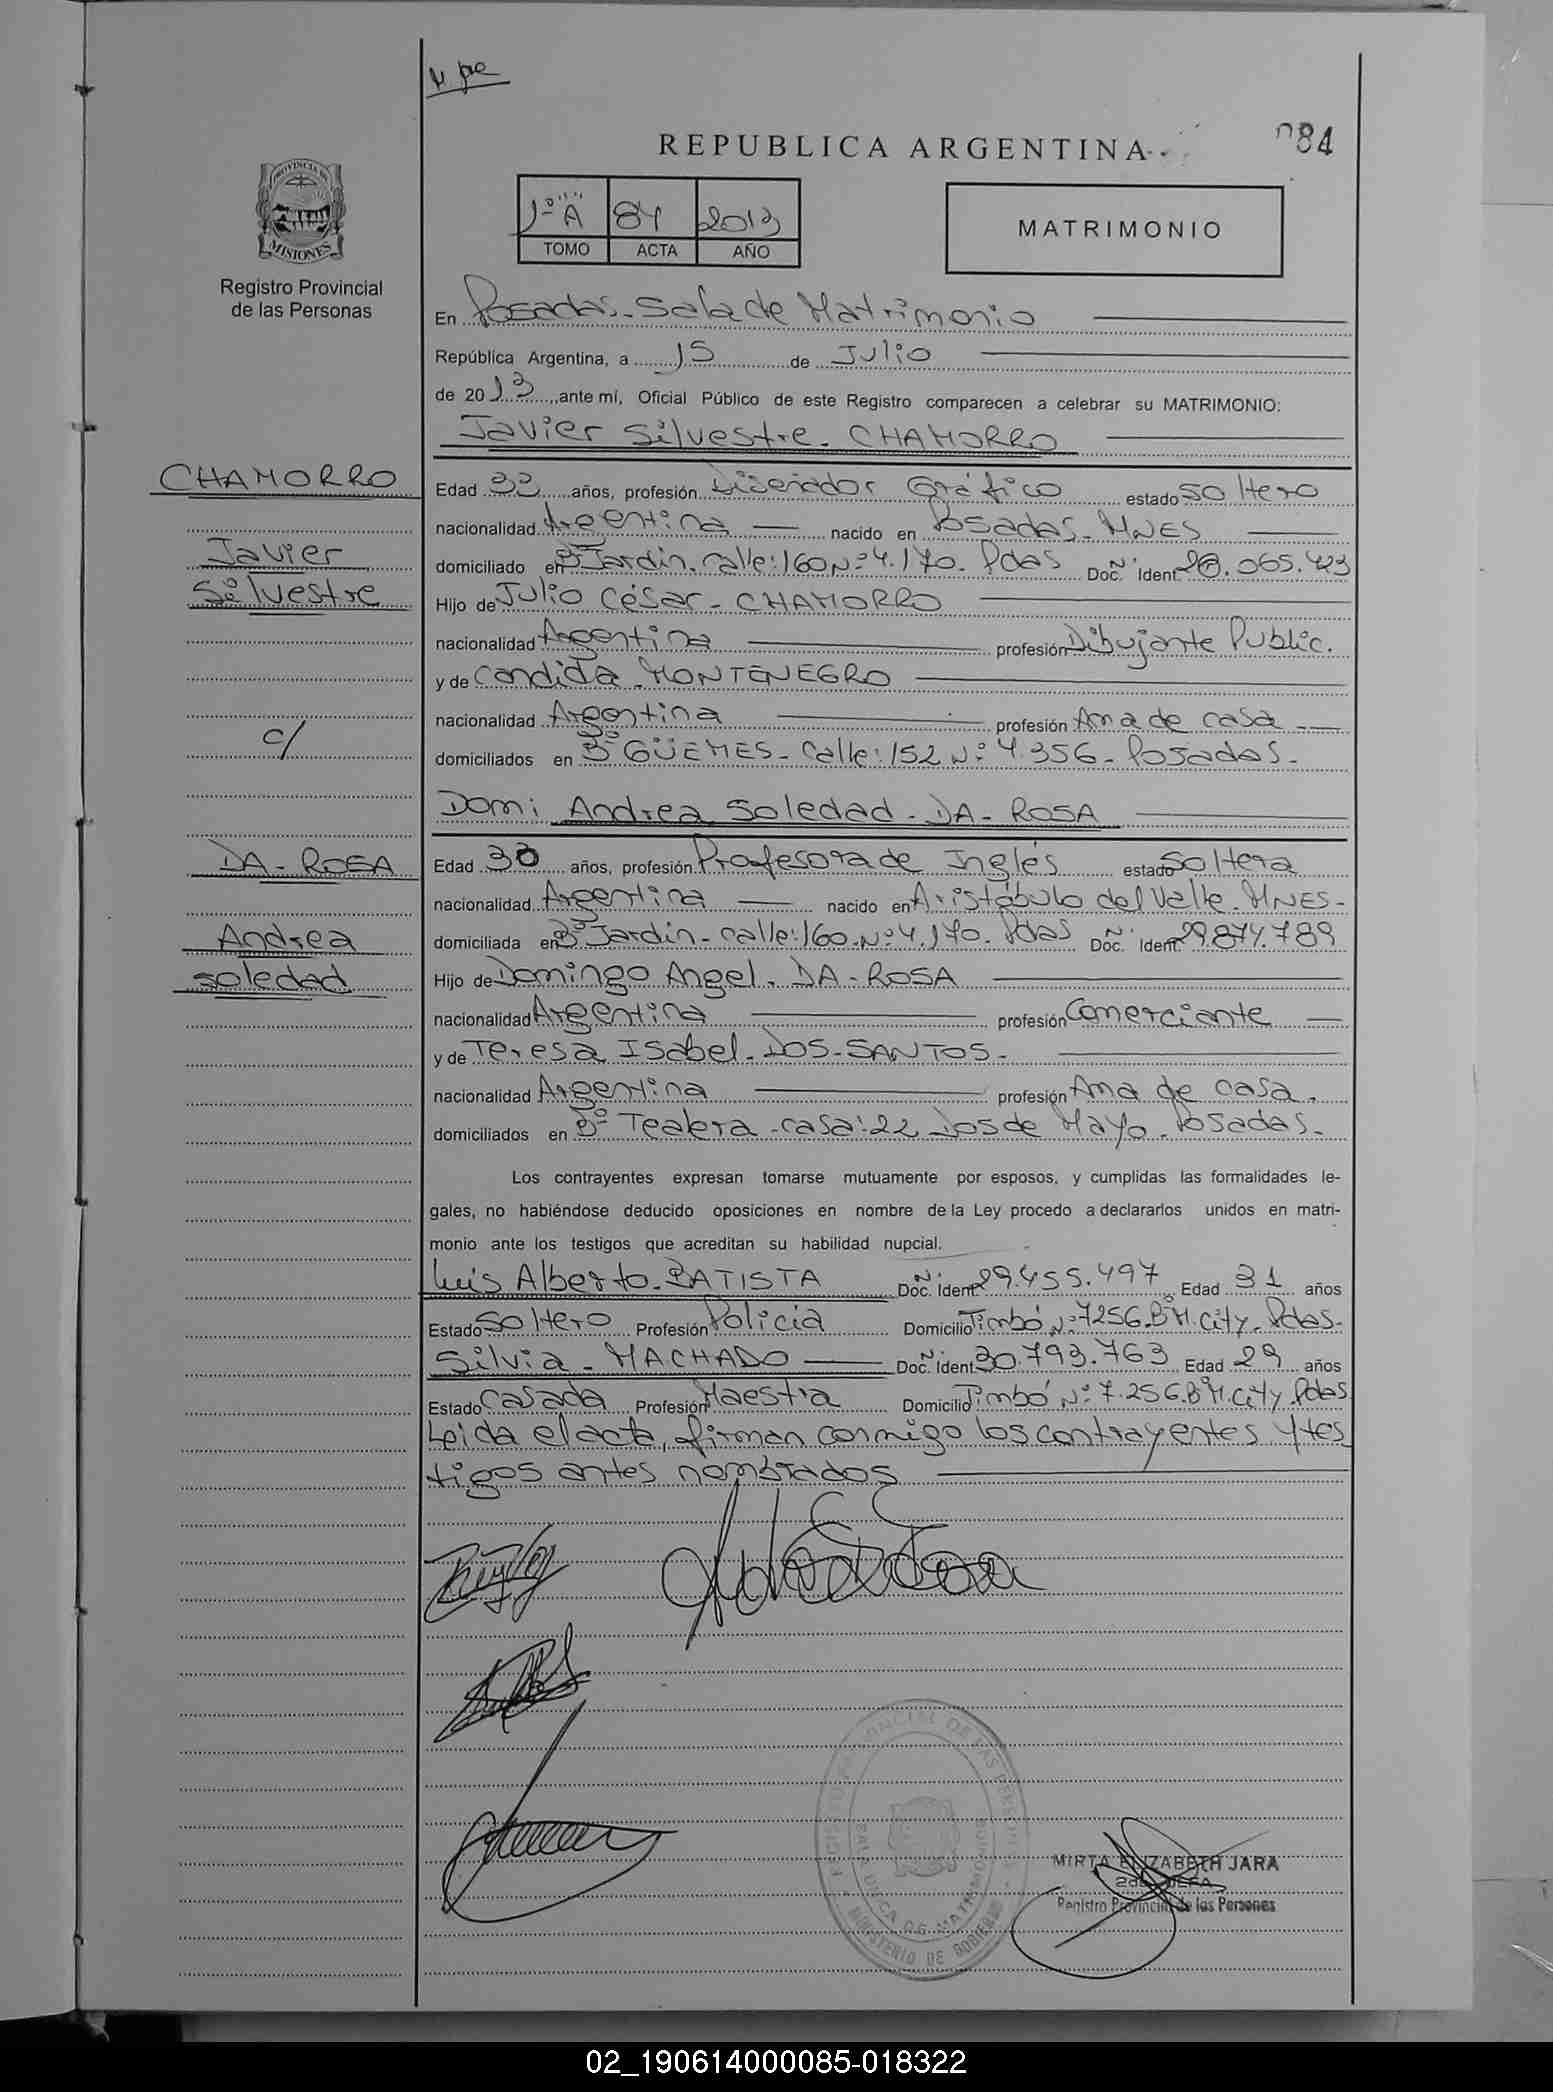 084
REPUBLICA ARGENTINA
1º A 84 2013
TOMO ACTA AÑO
MATRIMONIO
PROVINCIA DE MISIONES
Registro Provincial
de las Personas
En Posadas. Sala de Matrimonio
República Argentina, a 15 de Julio
de 2013, ante mí, Oficial Público de este Registro comparecen a celebrar su MATRIMONIO:
Javier Silvestre. CHAMORRO
CHAMORRO
Javier
Silvestre
c/
DA-ROSA
Andrea
Soledad
Edad 33 años, profesión Diseñador Gráfico estado Soltero
nacionalidad Argentina nacido en Posadas. MNES
domiciliado en Bº Jardín. calle: 160 Nº 4.170. Pdas Doc. Nº Ident. 28.065.423
Hijo de Julio César - CHAMORRO
nacionalidad Argentina profesión Dibujante Public.
y de Candida. MONTENEGRO
nacionalidad Argentina profesión Ama de casa
domiciliados en Bº GÜEMES - Calle: 152 Nº: 4.356 - Posadas -
Domi Andrea Soledad - DA - ROSA
Edad 30 años, profesión Profesora de Inglés estado Soltera
nacionalidad Argentina nacido en Aristóbulo del Valle. MNES -
domiciliada en Bº Jardín - calle: 160 Nº 4.170. Pdas Doc. Nº Ident. 29.874.789
Hijo de Domingo Angel. DA - ROSA
nacionalidad Argentina profesión Comerciante
y de Teresa Isabel. DOS-SANTOS -
nacionalidad Argentina profesión Ama de casa.
domiciliados en Bº Tealera - casa: 22 Dos de Mayo - Posadas -
Los contrayentes expresan tomarse mutuamente por esposos, y cumplidas las formalidades le-
gales, no habiéndose deducido oposiciones en nombre de la Ley procedo a declararlos unidos en matri-
monio ante los testigos que acreditan su habilidad nupcial.
Luis Alberto - BATISTA Doc. Nº Ident 29.455.497 Edad 31 años
Estado Soltero Profesión Policía Domicilio Timbó Nº 7256. Bº M. City. Pdas -
Silvia - MACHADO Doc. Nº Ident 30.793.763 Edad 29 años
Estado Casada Profesión Maestra Domicilio Timbó Nº: 7.256. Bº M. City. Pdas
Leida el acta, firman conmigo los contrayentes y tes
tigos antes nombrados
REGISTRO PROVINCIAL DE LAS PERSONAS
SALA UNICA DE MATRIMONIOS
MINISTERIO DE GOBIERNO
MIRTA ELIZABETH JARA
2da JEFA
Registro Provincial de las Personas
02_190614000085-018322